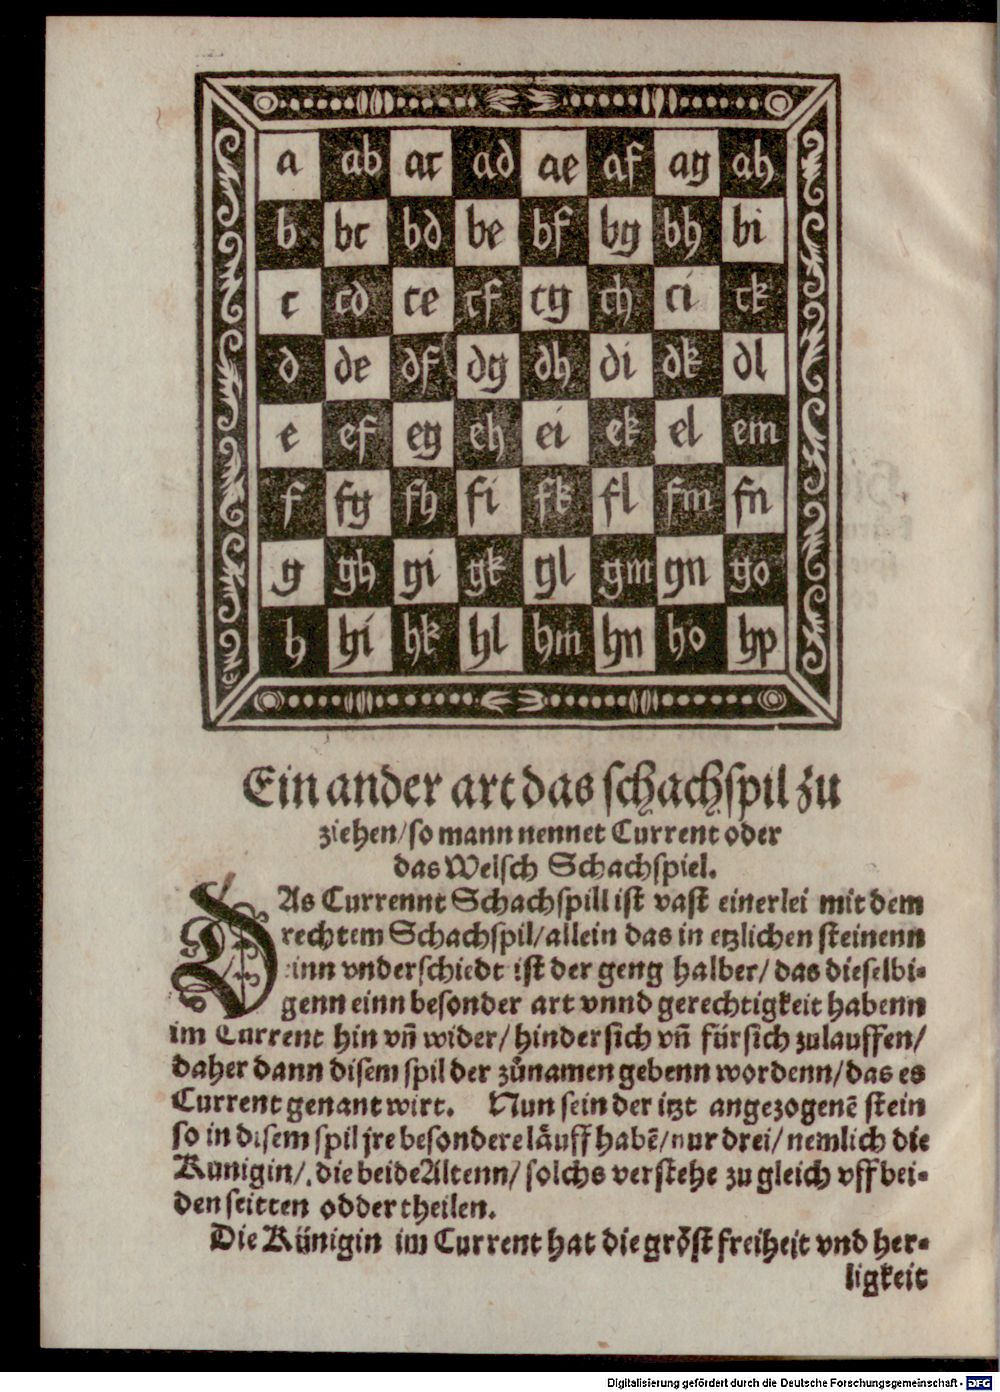 a ab ac ad ae af ag ah
b bc bd be bf bg bh bi
c cd ce cf cg ch ci ck
d de df dg dh di dk dl
e ef eg eh ei ek el em
f fg fh fi fk fl fm fn
g gh gi gk gl gm gn go
h hi hk hl hm hn ho hp
Ein ander art das ſchachſpil zu
ziehen/ſo mann nennet Current oder
das Welſch Schachſpiel.
DAs Currennt Schachſpill iſt vaſt einerlei mit dem
rechtem Schachſpil/allein das in etzlichen ſteinenn
inn vnderſchiedt iſt der geng halber/das dieſelbi⸗
genn einn beſonder art vnnd gerechtigkeit habenn
im Current hin vñ wider/hinderſich vñ fürſich zulauffen/
daher dann diſem ſpil der zůnamen gebenn wordenn/das es
Current genant wirt. Nun ſein der itzt angezogenẽ ſtein
ſo in diſem ſpil jre beſondere läuff habẽ/nur drei/nemlich die
Kunigin/die beide Altenn/ſolchs verſtehe zu gleich vff bei⸗
den ſeitten odder theilen.
Die Künigin im Current hat die gröſt freiheit vnd her⸗
ligkeit
Digitalisierung gefördert durch die Deutsche Forschungsgemeinschaft - DFG